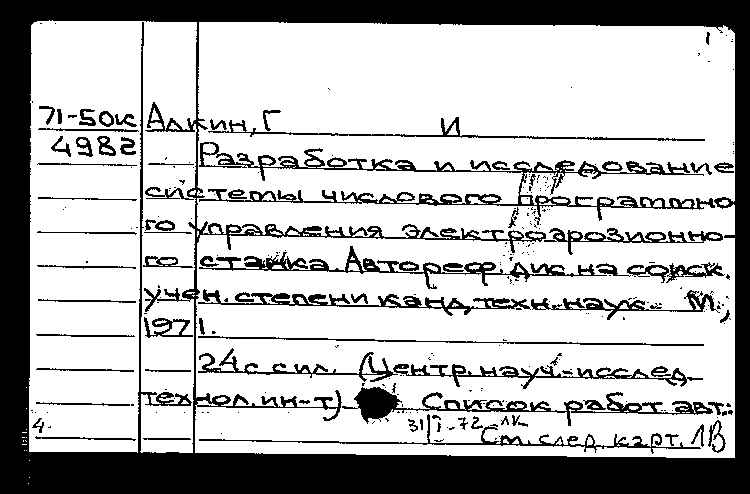 1
71-50к Алкин, Г И
4982 Разработка и исследование
системы числового программно-
го управления электроэрозионно-
го станка. Автореф. дис. на соиск.
учен. степени канд. техн. наук. М.,
1971.
24 с. с ил. (Центр. науч.-исслед.
технол. ин-т) Список работ авт.:
31/I-72 ЛК
4. См. след. карт. ЛВ